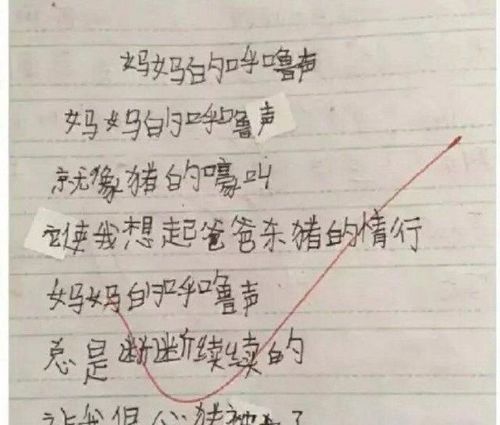 妈妈的呼噜声
妈妈的呼噜声
就像猪的嚎叫
使我想起爸爸杀猪的情行
妈妈的呼噜声
总是断断续续的
让我担心猪被